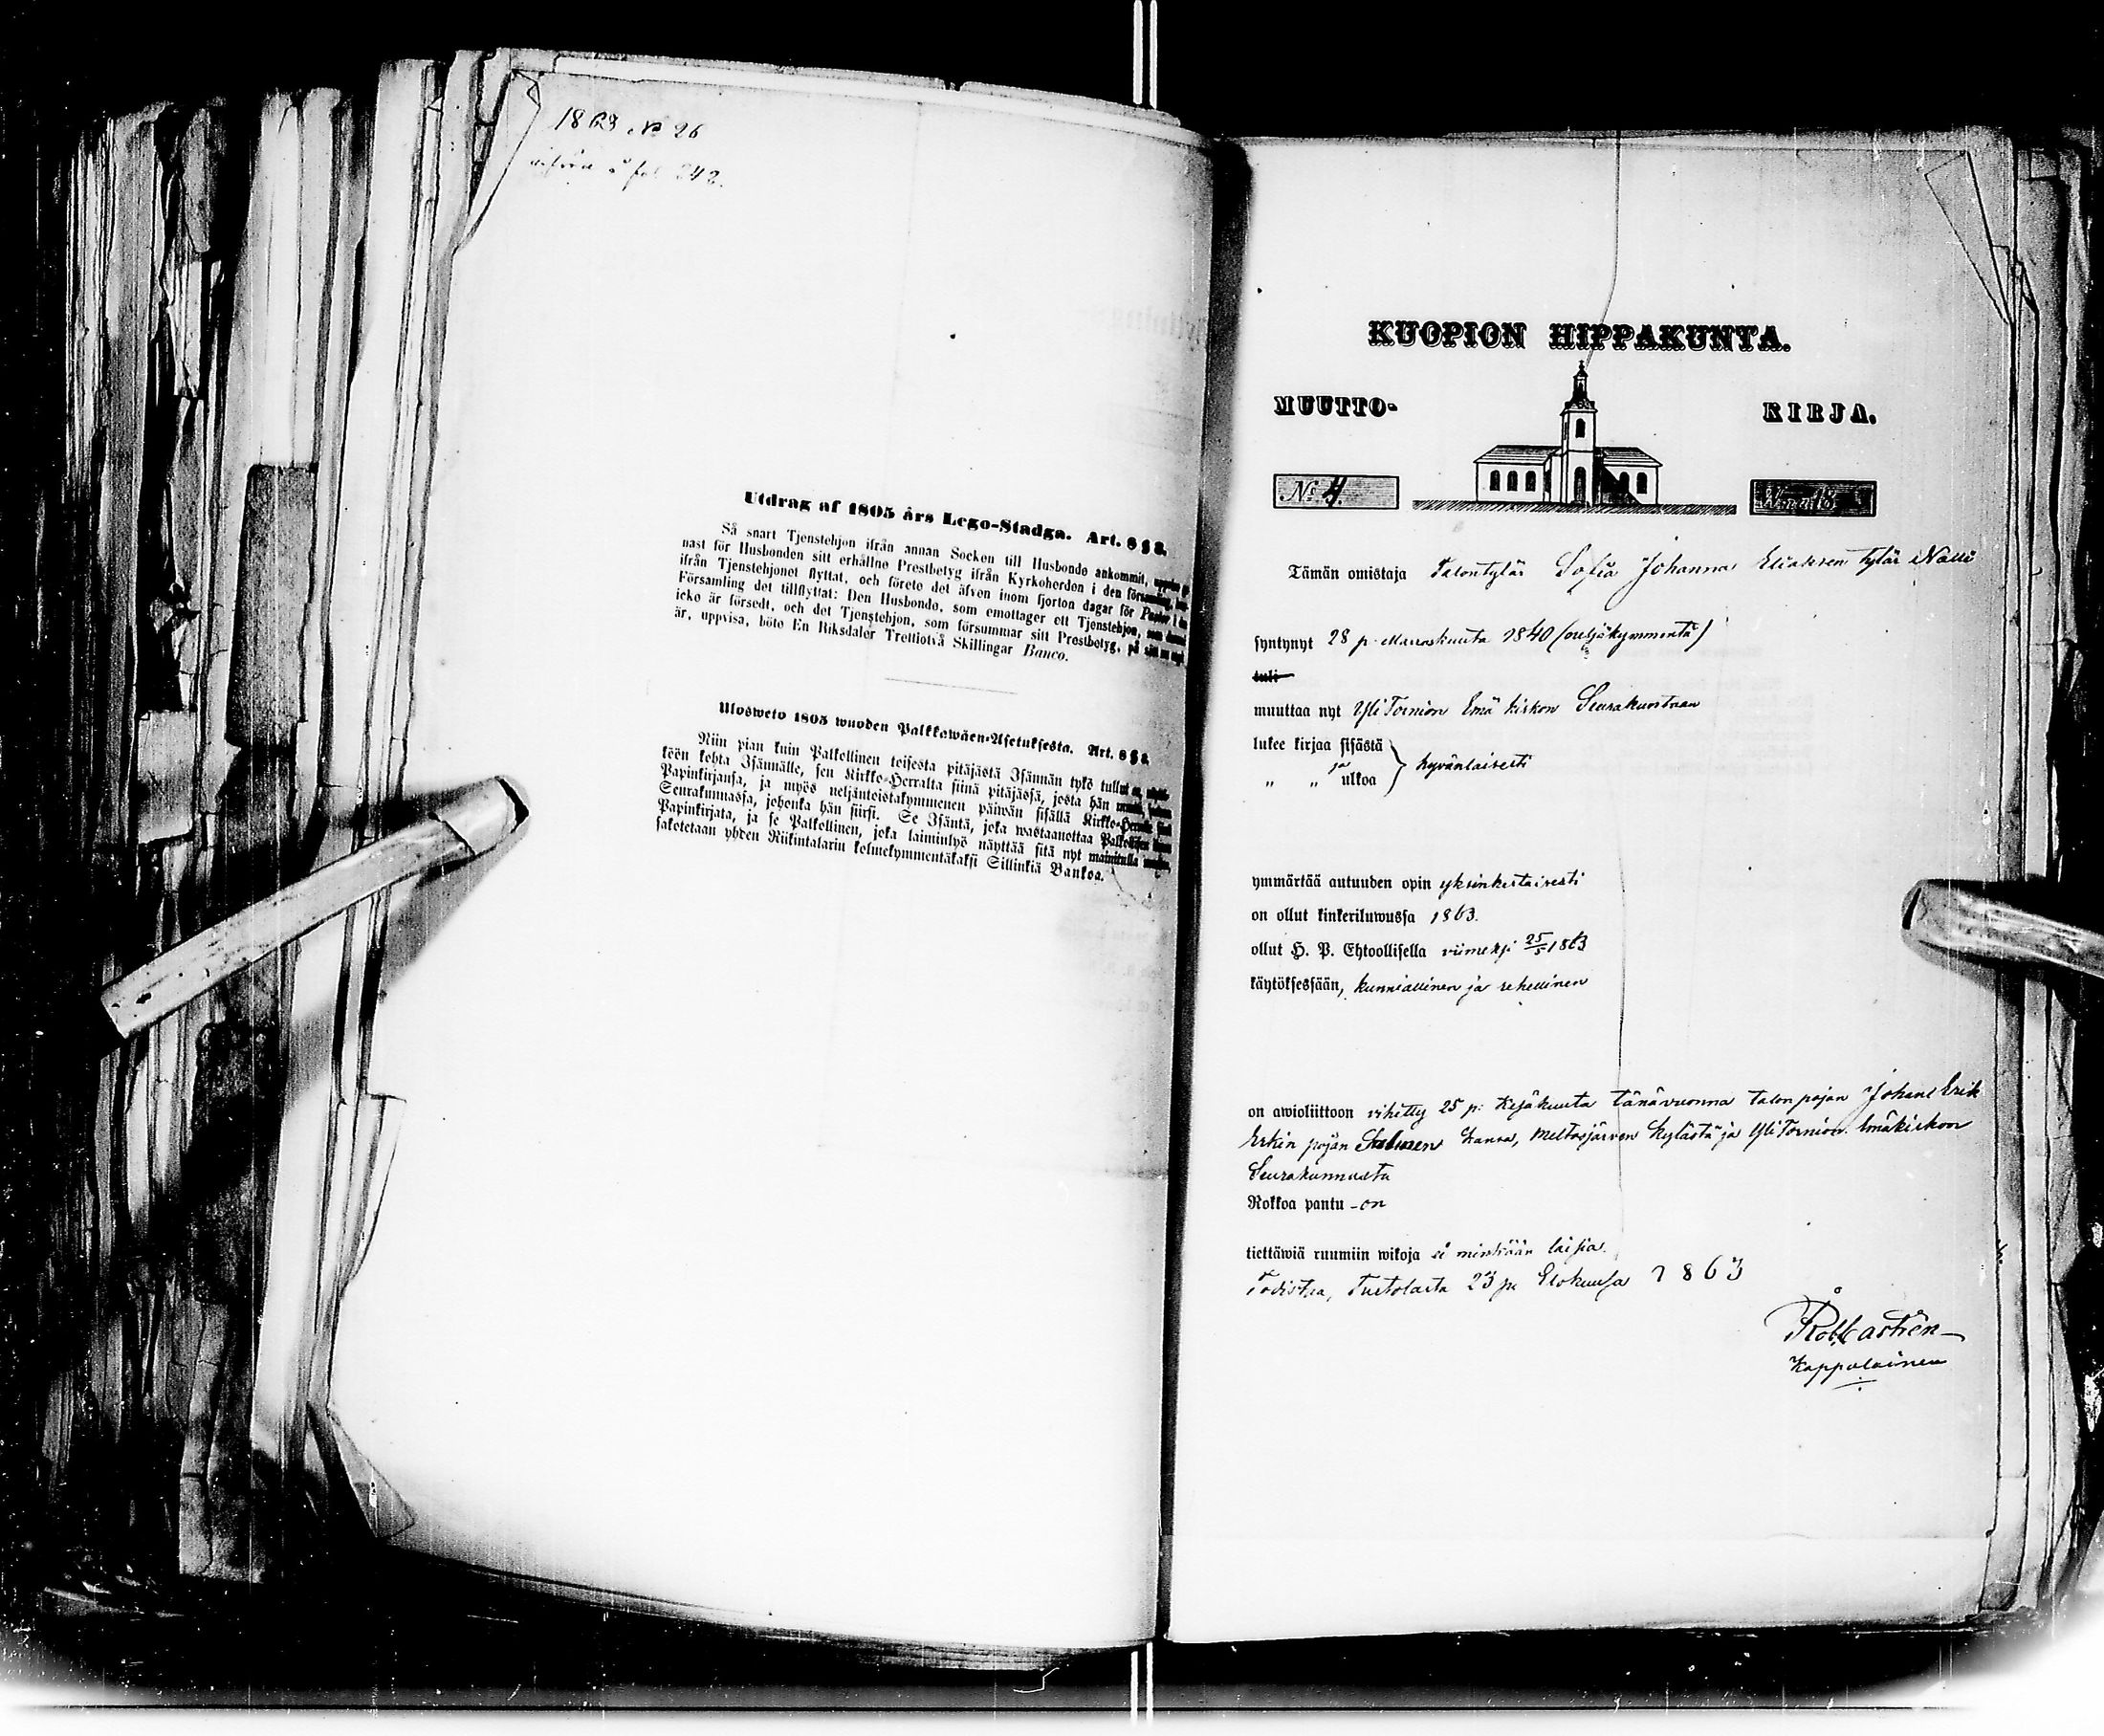 1863 No 26
införd å fol 242.
Utdrag af 1805 års Lego-Stadga. Art. 8 § 8.
Så snart Tjenstehjon ifrån annan Socken till Husbonde ankommit,
nast för Husbonden sitt erhållne Prestbetyg ifrån Kyrkoherden i den
ifrån Tjenstehjonet flyttat, och förete det äfven inom fjorton dagar för Pastor i
Församling det tillflyttat: Den Husbonde, som emottager ett Tjenstehjon, som
icke är försedt, och det Tjenstehjon, som försummar sitt Prestbetyg, på sätt
är, uppvisa, böte En Riksdaler Trettiotvå Skillingar Banco.
Uloswето 1805 wuoden Palkkawäen-Asetuksesta. Art. 8 § 8.
Niin pian kuin Palkollinen toisesta pitäjästä Isännän tykö tullut
köön kohta Isännälle, sen Kirkko-Herralta siinä pitäjässä, josta hän
Papinkirjansa, ja myös neljäntoistakymmenen päiwän sisällä Kirkko-Herralle
Seurakunnassa, johonka hän siirsi. Se Isäntä, joka wastaanottaa Palkollisen
Papinkirjata, ja se Palkollinen, joka laiminlyö näyttää sitä nyt mainitulla
saketetaan yhden Riikintalarin kolmekymmentäkaksi Sillinkiä Bankoa.
KUOPION HIPPAKUNTA.
MUUTTO- KIRJA.
No 4.
Tämän omistaja Talontytär Sofia Johanna Eliaksen tytär Nalli
syntynyt 28 p. Marraskuuta 1840 (neljäkymmentä)
tuli
muuttaa nyt YliTornion Emä kirkon Seurakuntaan
lukee kirjaa sisästä
„ „ ja ulkoa } hyvänlaisesti
ymmärtää autuuden opin yksinkertaisesti
on ollut kinkeriluwussa 1863.
ollut H. P. Ehtoollisella viimeksi 25/5 1863
käytöksessään, kunniallinen ja rehellinen
on awioliittoon vihitty 25 p: Kesäkuuta tänävuonna talon pojan Johan Erik
Erkin pojan kanssa, Meltosjärven kylästä ja YliTornion Emäkirkon
Seurakunnasta
Rokkoa pantu - on
tiettäwiä ruumiin wikoja ei minkään laisia.
Todistaa, Turtolasta 23 p. Elokuusa 1863
Kappalainen